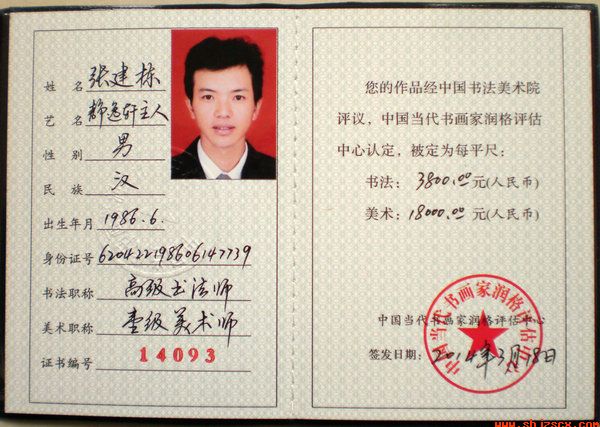 姓 名 张建栋
艺 名 静逸轩主人
性 别 男
民 族 汉
出生年月 1986.6.
身份证号 620422198606147739
书法职称 高级书法师
美术职称 壹级美术师
证书编号 14093
您的作品经中国书法美术院
评议，中国当代书画家润格评估
中心认定，被定为每平尺：
书法： 3800.00元(人民币)
美术： 18000.00元(人民币)
中国当代书画家润格评估中心
中国当代书画家润格评估中心
签发日期： 2014年3月18日
www.shjzscx.com